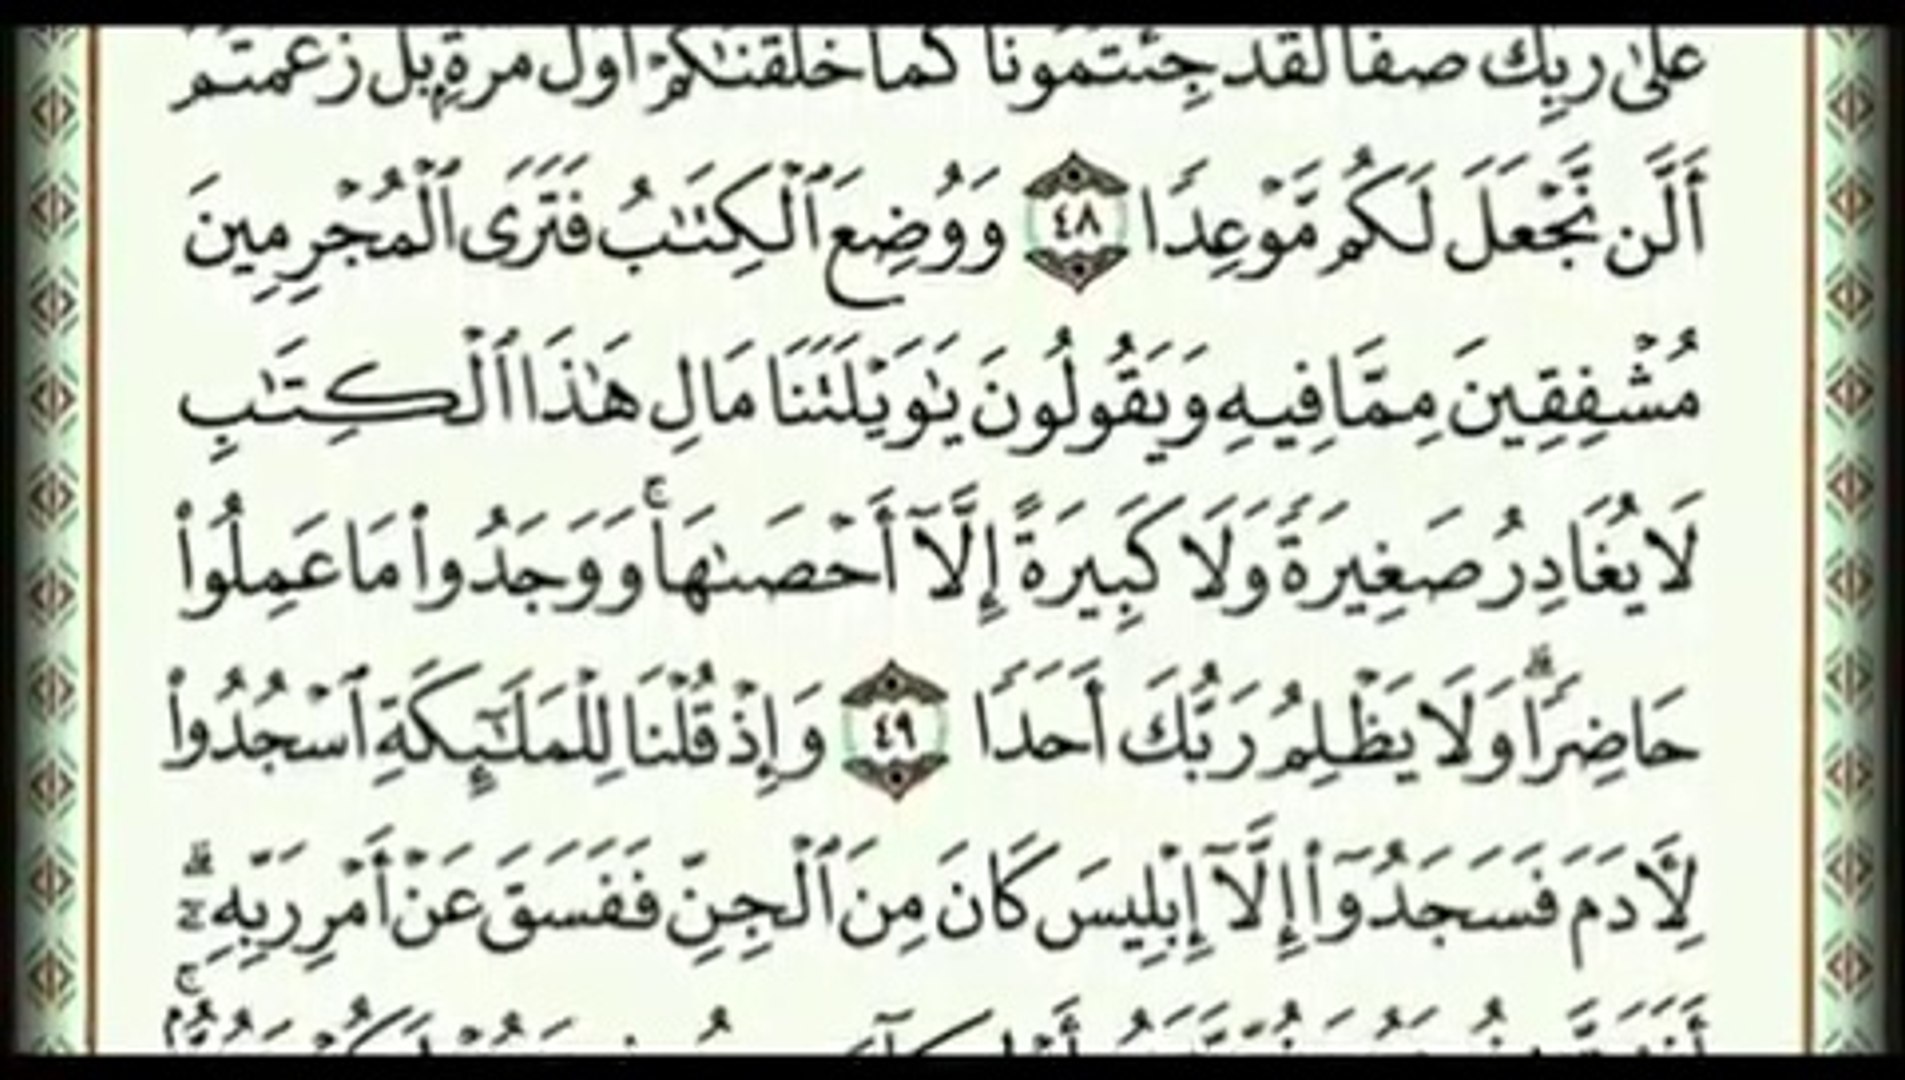 عَلَىٰ رَبِّكَ صَفًّا لَّقَدْ جِئْتُمُونَا كَمَا خَلَقْنَٰكُمْ أَوَّلَ مَرَّةٍۭ بَلْ زَعَمْتُمْ
أَلَّن نَّجْعَلَ لَكُم مَّوْعِدًا ٤٨ وَوُضِعَ ٱلْكِتَٰبُ فَتَرَى ٱلْمُجْرِمِينَ
مُشْفِقِينَ مِمَّا فِيهِ وَيَقُولُونَ يَٰوَيْلَتَنَا مَالِ هَٰذَا ٱلْكِتَٰبِ
لَا يُغَادِرُ صَغِيرَةً وَلَا كَبِيرَةً إِلَّآ أَحْصَىٰهَاۚ وَوَجَدُوا۟ مَا عَمِلُوا۟
حَاضِرًاۗ وَلَا يَظْلِمُ رَبُّكَ أَحَدًا ٤٩ وَإِذْ قُلْنَا لِلْمَلَٰٓئِكَةِ ٱسْجُدُوا۟
لِـَٔادَمَ فَسَجَدُوٓا۟ إِلَّآ إِبْلِيسَ كَانَ مِنَ ٱلْجِنِّ فَفَسَقَ عَنْ أَمْرِ رَبِّهِۦٓۗ